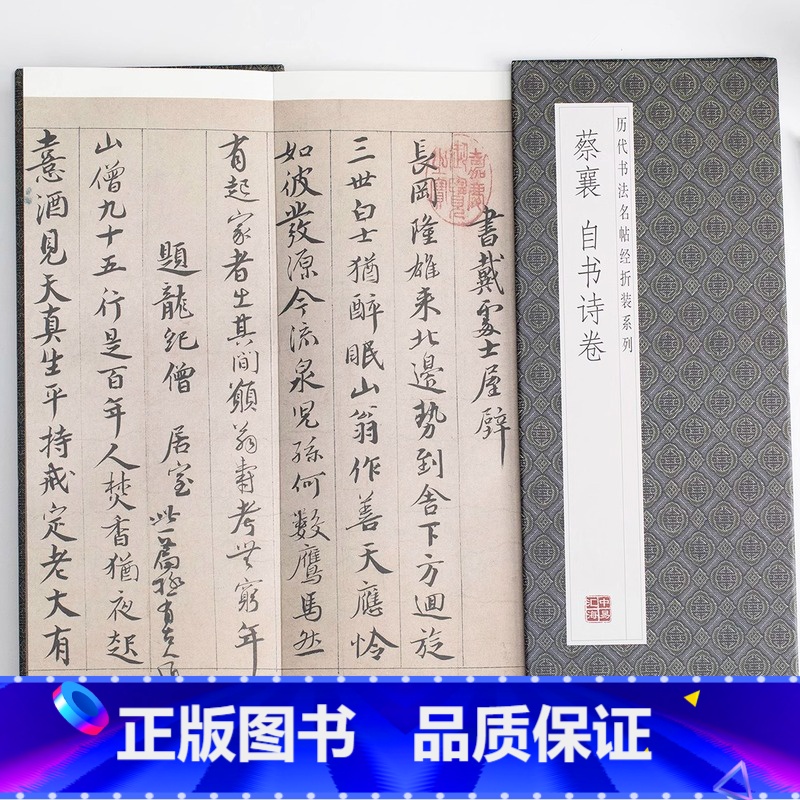 書戴處士屋壁
長岡隆雄来北邊勢到舍下方迴旋
三世白士猶醉眠山翁作善天應怜
如彼發源今流泉児孫何數鷹馬然
有起家者出其間願翁壽考無窮年
題龍紀僧居室此一篇極有
山僧九十五行是百年人焚香猶夜起
憙酒見天真生平持戒定老大有
历代书法名帖经折装系列
蔡襄 自书诗卷
中易
汇海
正版图书 品质保证